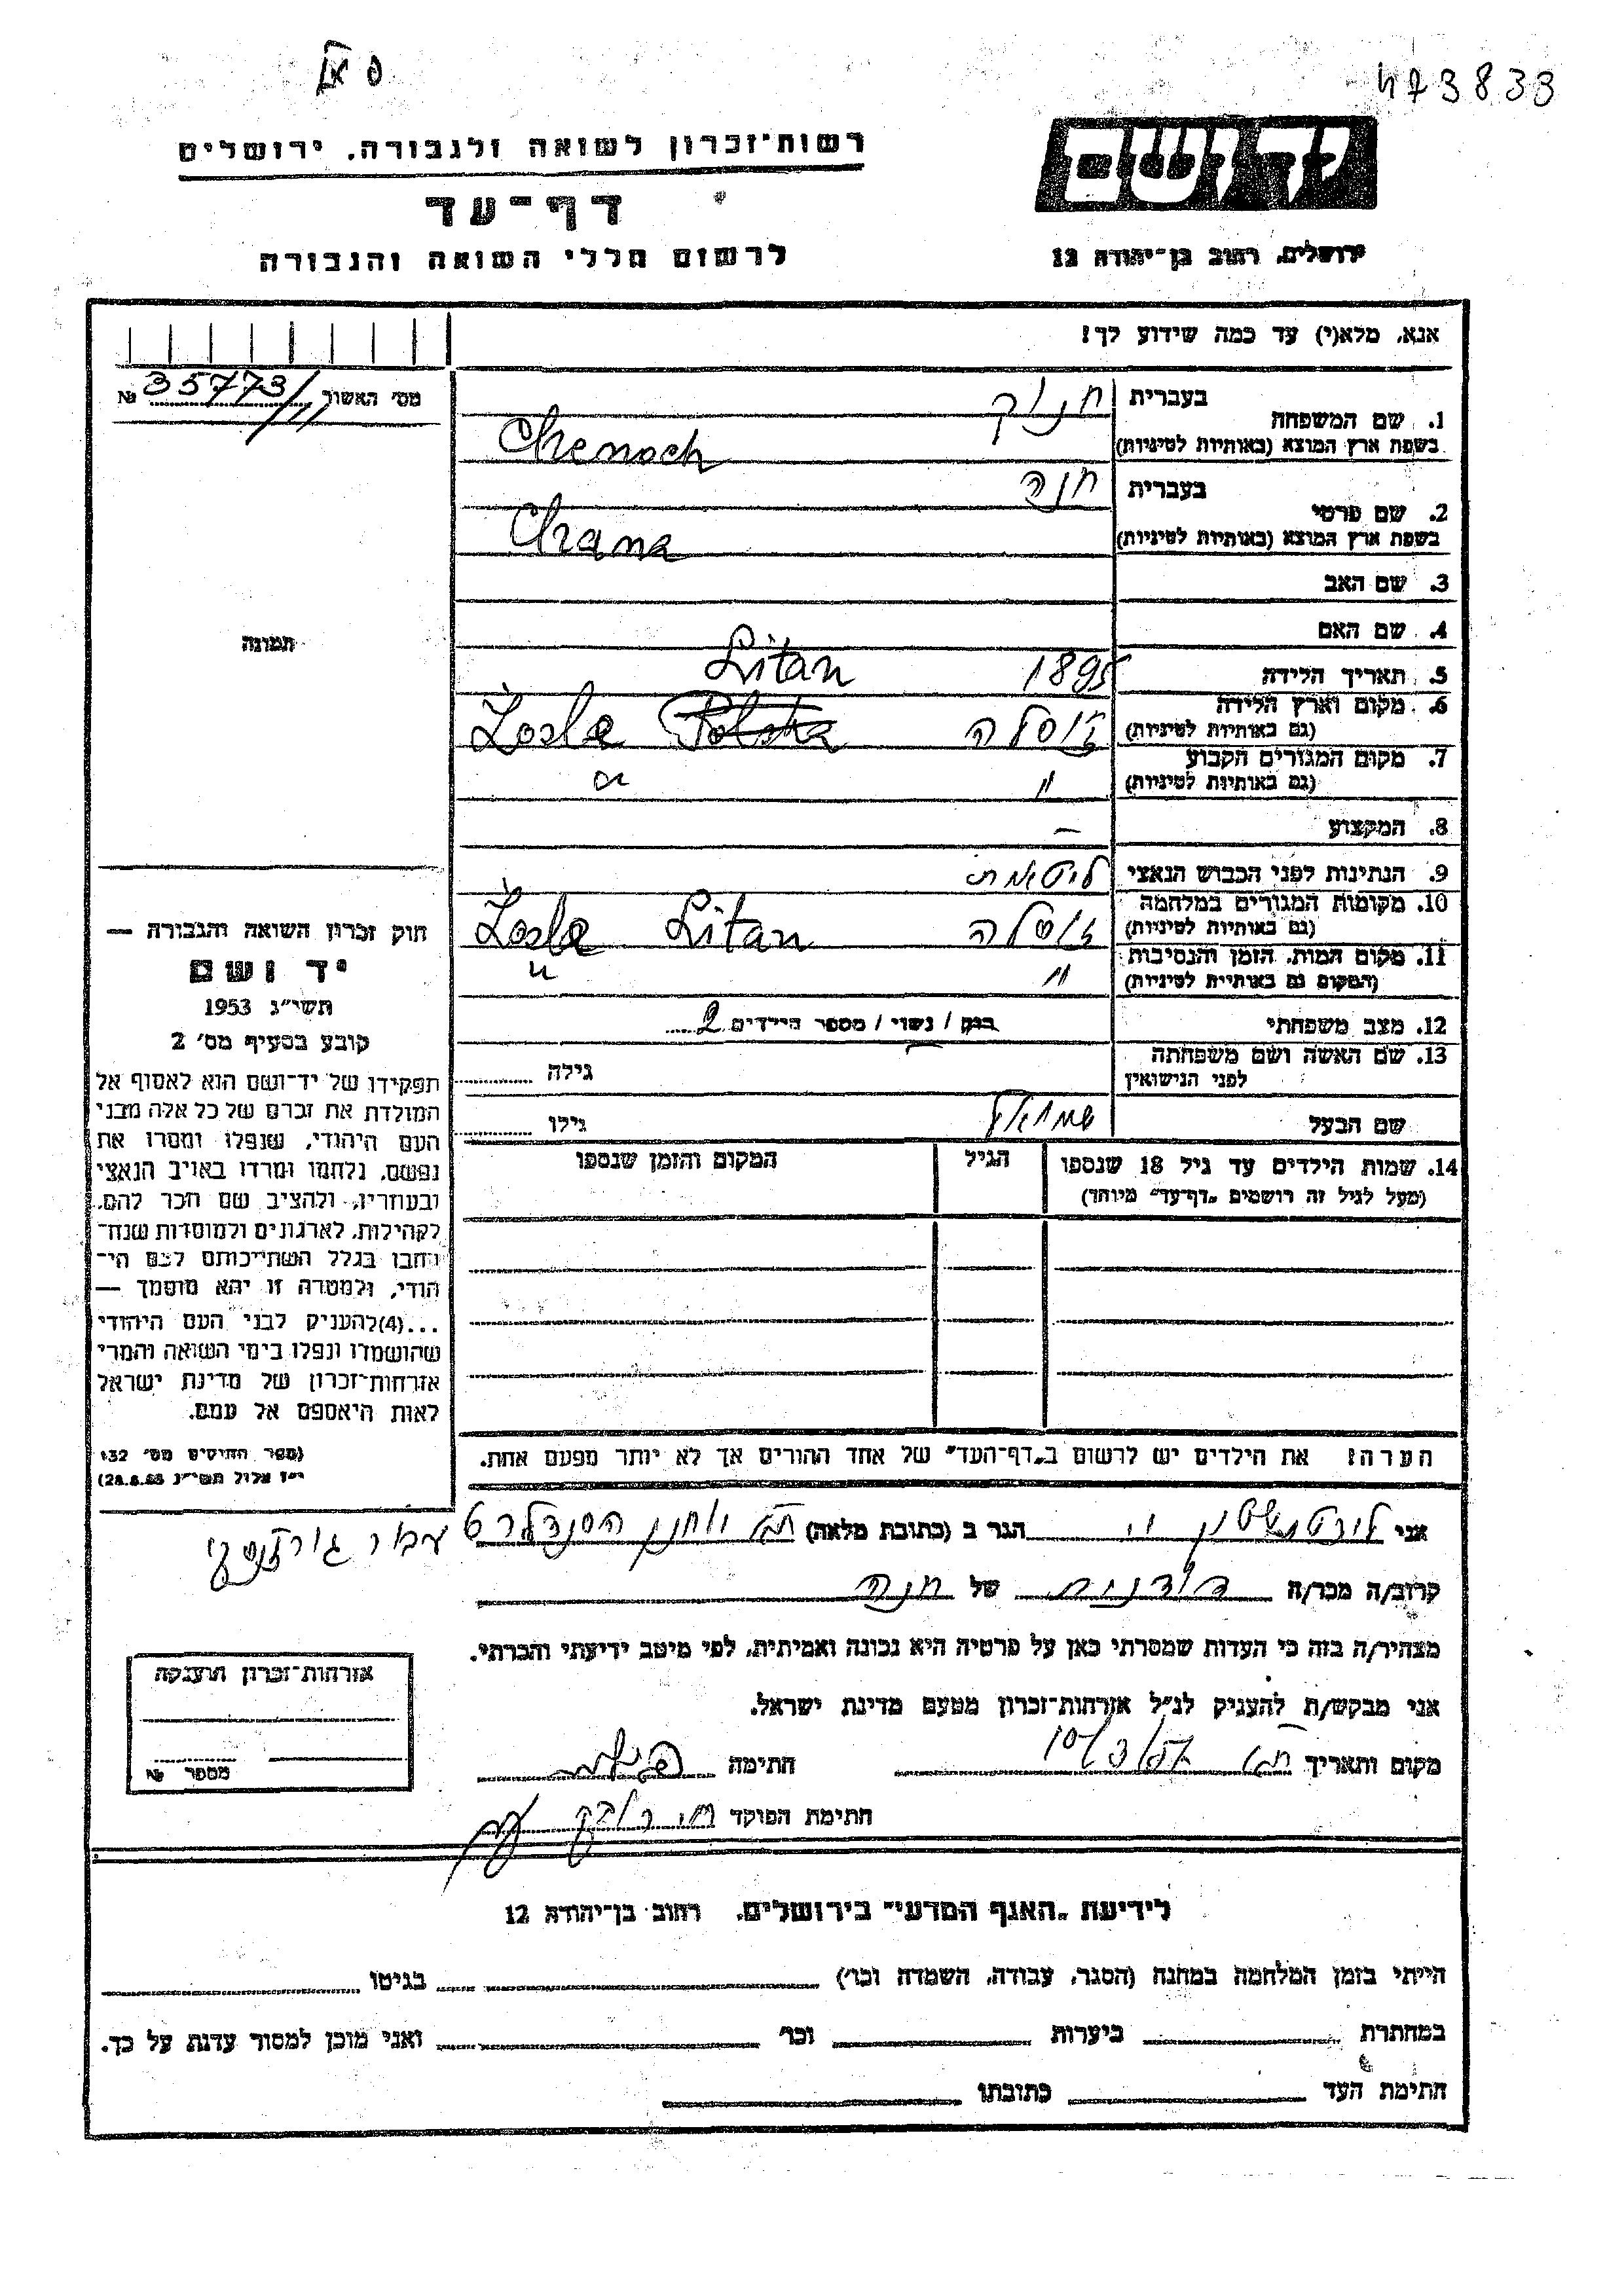 473833
רשות־זכרון לשואה ולגבורה, ירושלים
יד ושם
דף־עד
ירושלים, רחוב בן־יהודה 12
לרשום חללי השואה והגבורה
אנא, מלא(י) עד כמה שידוע לך!
מס' האשור 35773/111 №
1. שם המשפחה בעברית חנוך
בשפת ארץ המוצא (באותיות לטיניות) Chenoch
2. שם פרטי בעברית חנה
בשפת ארץ המוצא (באותיות לטיניות) Chana
3. שם האב
4. שם האם
תמונה
5. תאריך הלידה 1895 Litan
6. מקום וארץ הלידה
(גם באותיות לטיניות) ז'וסלה Polska Żosle
7. מקום המגורים הקבוע
(גם באותיות לטיניות) "
8. המקצוע –
9. הנתינות לפני הכבוש הנאצי ליטאית
10. מקומות המגורים במלחמה
(גם באותיות לטיניות) ז'וסלה Litan Żosle
11. מקום המות, הזמן והנסיבות
(המקום גם באותיות לטיניות) " "
12. מצב משפחתי רווק / נשוי / מספר הילדים 2
13. שם האשה ושם משפחתה
לפני הנישואין גילה
שם הבעל שמואל גילו
14. שמות הילדים עד גיל 18 שנספו הגיל המקום והזמן שנספו
(מעל לגיל זה רושמים "דף־עד" מיוחד)
חוק זכרון השואה והגבורה —
יד ושם
תשי"ג 1953
קובע בסעיף מס' 2
תפקידו של יד־ושם הוא לאסוף אל
המולדת את זכרם של כל אלה מבני
העם היהודי, שנפלו ומסרו את
נפשם, נלחמו ומרדו באויב הנאצי
ובעוזריו, ולהציב שם וזכר להם,
לקהילות, לארגונים ולמוסדות שנח־
רבו בגלל השתייכותם לעם הי־
הודי, ולמטרה זו יהא מוסמך —
...(4) להעניק לבני העם היהודי
שהושמדו ונפלו בימי השואה והמרי
אזרחות־זכרון של מדינת ישראל
לאות היאספם אל עמם.
(ספר החוקים מס' 132
י"ז אלול תשי"ג 28.8.53)
הערה: את הילדים יש לרשום ב"דף־העד" של אחד ההורים אך לא יותר מפעם אחת.
אני הגר ב (כתובת מלאה) יוחנן הסנדלר
קרוב/ה מכר/ה של חנה
מצהיר/ה בזה כי העדות שמסרתי כאן על פרטיה היא נכונה ואמיתית, לפי מיטב ידיעתי והכרתי.
אני מבקש/ת להעניק לנ"ל אזרחות־זכרון מטעם מדינת ישראל.
מקום ותאריך חתימה
חתימת הפוקד
אזרחות־זכרון הוענקה
מספר №
לידיעת "האגף המדעי" בירושלים, רחוב בן־יהודה 12
הייתי בזמן המלחמה במחנה (הסגר, עבודה, השמדה וכו') בגיטו
במחתרת ביערות וכו' ואני מוכן למסור עדות על כך.
חתימת העד כתובתו